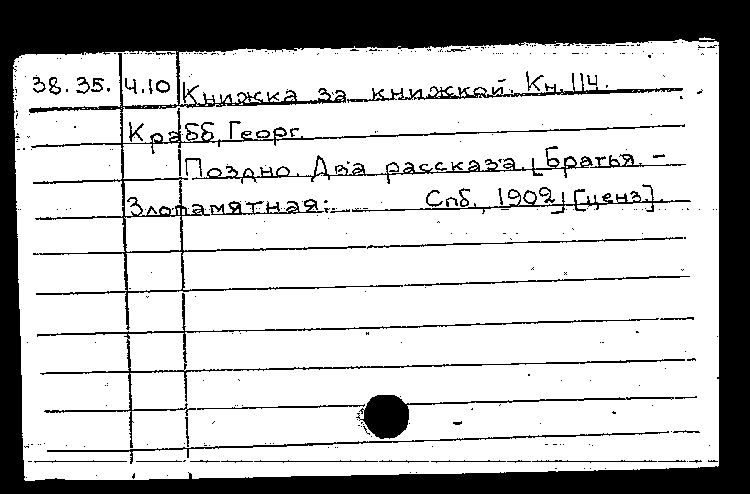 38.35. 4.10 Книжка за книжкой. Кн. 114.
Крабб, Георг.
Поздно. Два рассказа. [Братья. –
Злопамятная: Спб., 1902] [ценз.].